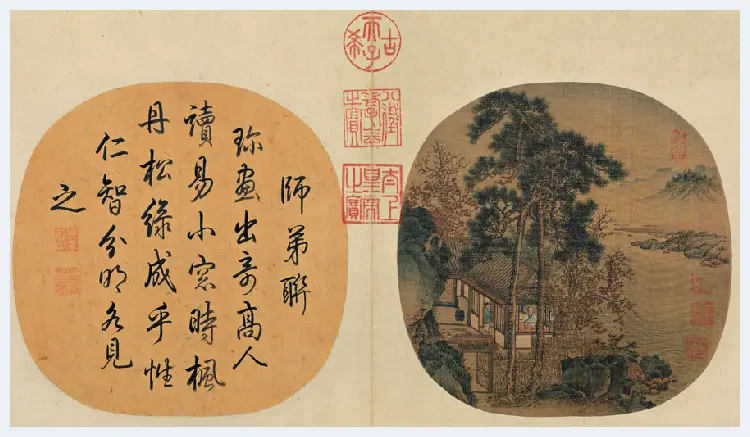 師弟聯
珎畫出奇高人
讀易小窓時楓
丹松緑成乎性
仁智分明各見
之
古希天子
八徵耄念之寶
太上皇帝之寶